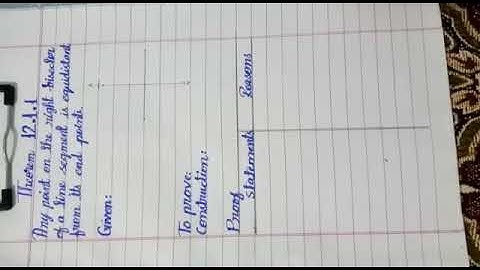 Theorem 12.1.1
Any point on the right bisector
of a line segment is equidistant
from its end points.
Given:
To prove:
Construction:
Proof
Statements Reasons